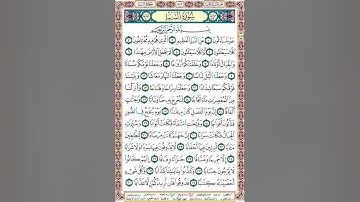 سُورَةُ النَّبَإِ
بِسْمِ اللَّهِ الرَّحْمَٰنِ الرَّحِيمِ
عَمَّ يَتَسَاءَلُونَ ۝ عَنِ النَّبَإِ الْعَظِيمِ ۝ الَّذِي هُمْ فِيهِ مُخْتَلِفُونَ ۝
كَلَّا سَيَعْلَمُونَ ۝ ثُمَّ كَلَّا سَيَعْلَمُونَ ۝ أَلَمْ نَجْعَلِ الْأَرْضَ مِهَادًا ۝
وَالْجِبَالَ أَوْتَادًا ۝ وَخَلَقْنَاكُمْ أَزْوَاجًا ۝ وَجَعَلْنَا نَوْمَكُمْ سُبَاتًا ۝
وَجَعَلْنَا اللَّيْلَ لِبَاسًا ۝ وَجَعَلْنَا النَّهَارَ مَعَاشًا ۝ وَبَنَيْنَا
فَوْقَكُمْ سَبْعًا شِدَادًا ۝ وَجَعَلْنَا سِرَاجًا وَهَّاجًا ۝ وَأَنْزَلْنَا
مِنَ الْمُعْصِرَاتِ مَاءً ثَجَّاجًا ۝ لِنُخْرِجَ بِهِ حَبًّا وَنَبَاتًا ۝ وَجَنَّاتٍ
أَلْفَافًا ۝ إِنَّ يَوْمَ الْفَصْلِ كَانَ مِيقَاتًا ۝ يَوْمَ يُنْفَخُ فِي الصُّورِ
فَتَأْتُونَ أَفْوَاجًا ۝ وَفُتِحَتِ السَّمَاءُ فَكَانَتْ أَبْوَابًا ۝ وَسُيِّرَتِ
الْجِبَالُ فَكَانَتْ سَرَابًا ۝ إِنَّ جَهَنَّمَ كَانَتْ مِرْصَادًا ۝ لِلطَّاغِينَ
مَآبًا ۝ لَابِثِينَ فِيهَا أَحْقَابًا ۝ لَا يَذُوقُونَ فِيهَا بَرْدًا وَلَا شَرَابًا ۝
إِلَّا حَمِيمًا وَغَسَّاقًا ۝ جَزَاءً وِفَاقًا ۝ إِنَّهُمْ كَانُوا
لَا يَرْجُونَ حِسَابًا ۝ وَكَذَّبُوا بِآيَاتِنَا كِذَّابًا ۝ وَكُلَّ شَيْءٍ
أَحْصَيْنَاهُ كِتَابًا ۝ فَذُوقُوا فَلَنْ نَزِيدَكُمْ إِلَّا عَذَابًا ۝